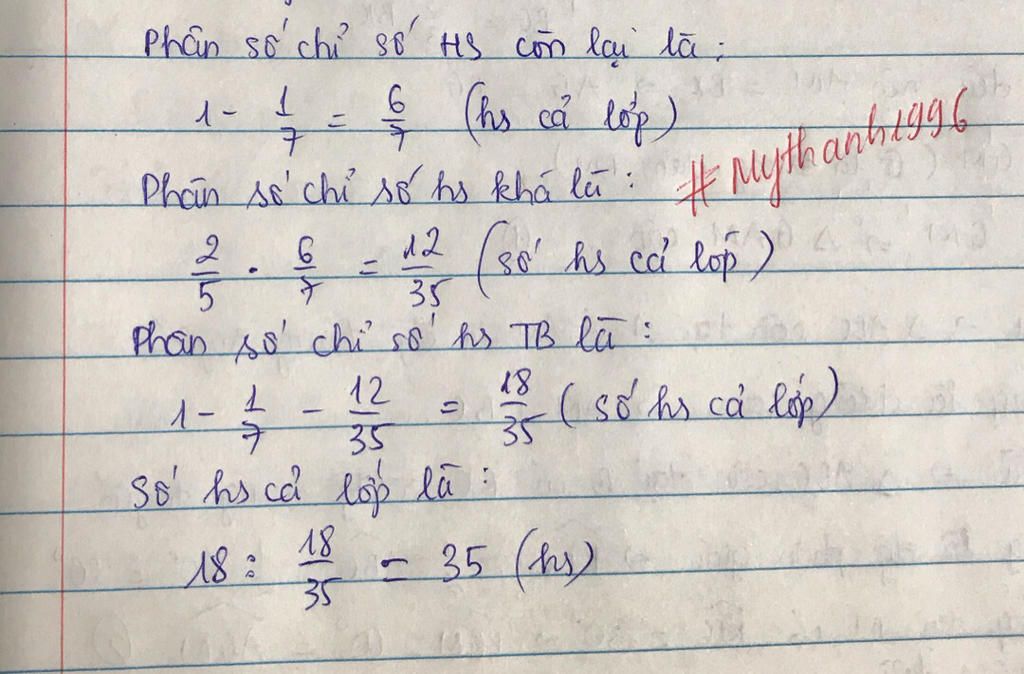 Phân số chỉ số HS còn lại là:
1 - 1/7 = 6/7 (hs cả lớp)
#Mythanh1996
Phân số chỉ số hs khá là:
2/5 . 6/7 = 12/35 (số hs cả lớp)
Phân số chỉ số hs TB là:
1 - 1/7 - 12/35 = 18/35 (số hs cả lớp)
Số hs cả lớp là:
18 : 18/35 = 35 (hs)